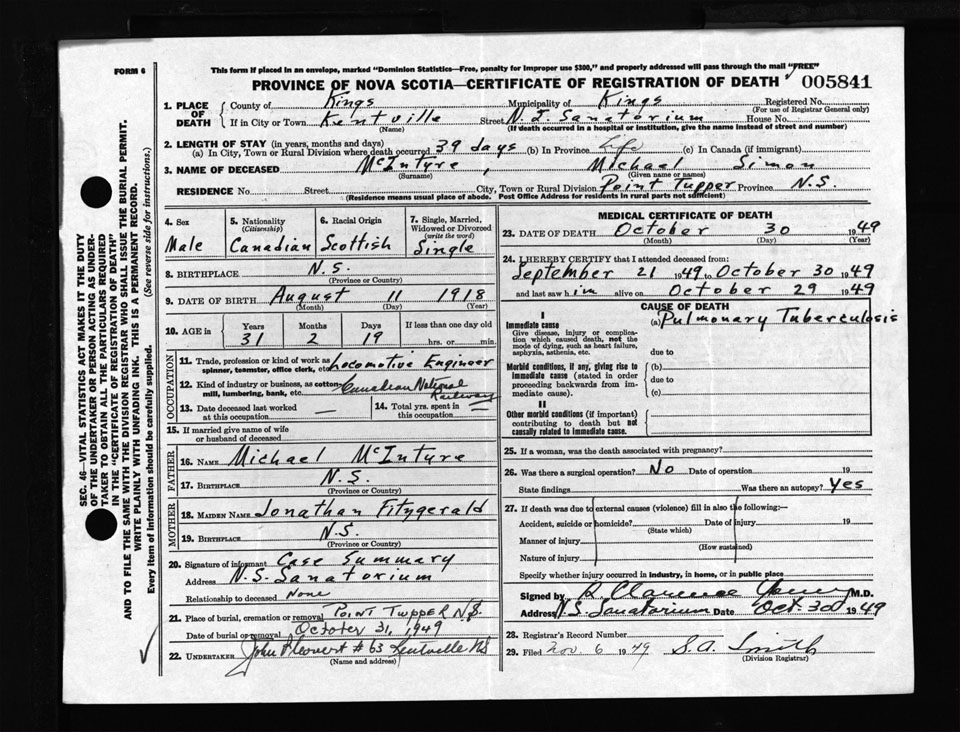 FORM 6
This form if placed in an envelope, marked "Dominion Statistics—Free, penalty for improper use $300," and properly addressed will pass through the mail "FREE"
PROVINCE OF NOVA SCOTIA—CERTIFICATE OF REGISTRATION OF DEATH 005841
SEC. 46—VITAL STATISTICS ACT MAKES IT THE DUTY
OF THE UNDERTAKER OR PERSON ACTING AS UNDER-
TAKER TO OBTAIN ALL THE PARTICULARS REQUIRED
IN THE "CERTIFICATE OF REGISTRATION OF DEATH"
AND TO FILE THE SAME WITH THE DIVISION REGISTRAR WHO SHALL ISSUE THE BURIAL PERMIT.
WRITE PLAINLY WITH UNFADING INK. THIS IS A PERMANENT RECORD.
Every item of information should be carefully supplied. (See reverse side for instructions.)
1. PLACE OF DEATH
County of Kings Municipality of Kings Registered No.
(For use of Registrar General only)
If in City or Town Kentville Street N.S. Sanatorium House No.
(Name) (If death occurred in a hospital or institution, give the name instead of street and number)
2. LENGTH OF STAY (in years, months and days)
(a) In City, Town or Rural Division where death occurred 39 days (b) In Province Life (c) In Canada (if immigrant)
3. NAME OF DECEASED McIntyre, Michael Simon
(Surname) (Given name or names)
RESIDENCE No. Street City, Town or Rural Division Point Tupper Province N.S.
(Residence means usual place of abode. Post Office Address for residents in rural parts not sufficient)
4. Sex Male
5. Nationality (Citizenship) Canadian
6. Racial Origin Scottish
7. Single, Married, Widowed or Divorced (write the word) Single
8. BIRTHPLACE N.S.
(Province or Country)
9. DATE OF BIRTH August 11 1918
(Month) (Day) (Year)
10. AGE in Years Months Days If less than one day old
31 2 19 hrs. or min.
OCCUPATION
11. Trade, profession or kind of work as spinner, teamster, office clerk, etc. Locomotive Engineer
12. Kind of industry or business, as cotton mill, lumbering, bank, etc. Canadian National Railway
13. Date deceased last worked at this occupation —
14. Total yrs. spent in this occupation —
15. If married give name of wife or husband of deceased
FATHER
16. NAME Michael McIntyre
17. BIRTHPLACE N.S.
(Province or Country)
MOTHER
18. MAIDEN NAME Jonathan Fitzgerald
19. BIRTHPLACE N.S.
(Province or Country)
20. Signature of informant Case Summary
Address N.S. Sanatorium
Relationship to deceased None
21. Place of burial, cremation or removal POINT TUPPER N.S.
Date of burial or removal October 31, 1949
22. UNDERTAKER John # 63 Kentville NS
(Name and address)
MEDICAL CERTIFICATE OF DEATH
23. DATE OF DEATH October 30 1949
(Month) (Day) (Year)
24. I HEREBY CERTIFY that I attended deceased from:
September 21 1949 to October 30 1949
and last saw him alive on October 29 1949
CAUSE OF DEATH
I
Immediate cause (a) Pulmonary Tuberculosis
Give disease, injury or complication which caused death, not the mode of dying, such as heart failure, asphyxia, asthenia, etc. due to
Morbid conditions, if any, giving rise to immediate cause (stated in order proceeding backwards from immediate cause). (b)
due to
(c)
II
Other morbid conditions (if important) contributing to death but not causally related to immediate cause.
25. If a woman, was the death associated with pregnancy?
26. Was there a surgical operation? No Date of operation 19
State findings Was there an autopsy? Yes
27. If death was due to external causes (violence) fill in also the following:—
Accident, suicide or homicide? Date of injury 19
(State which)
Manner of injury
(How sustained)
Nature of injury
Specify whether injury occurred in industry, in home, or in public place
Signed by R. Clarence M.D.
Address N.S. Sanatorium Date Oct 30 1949
28. Registrar's Record Number
29. Filed Nov. 6 1949 S.A. Smith
(Division Registrar)